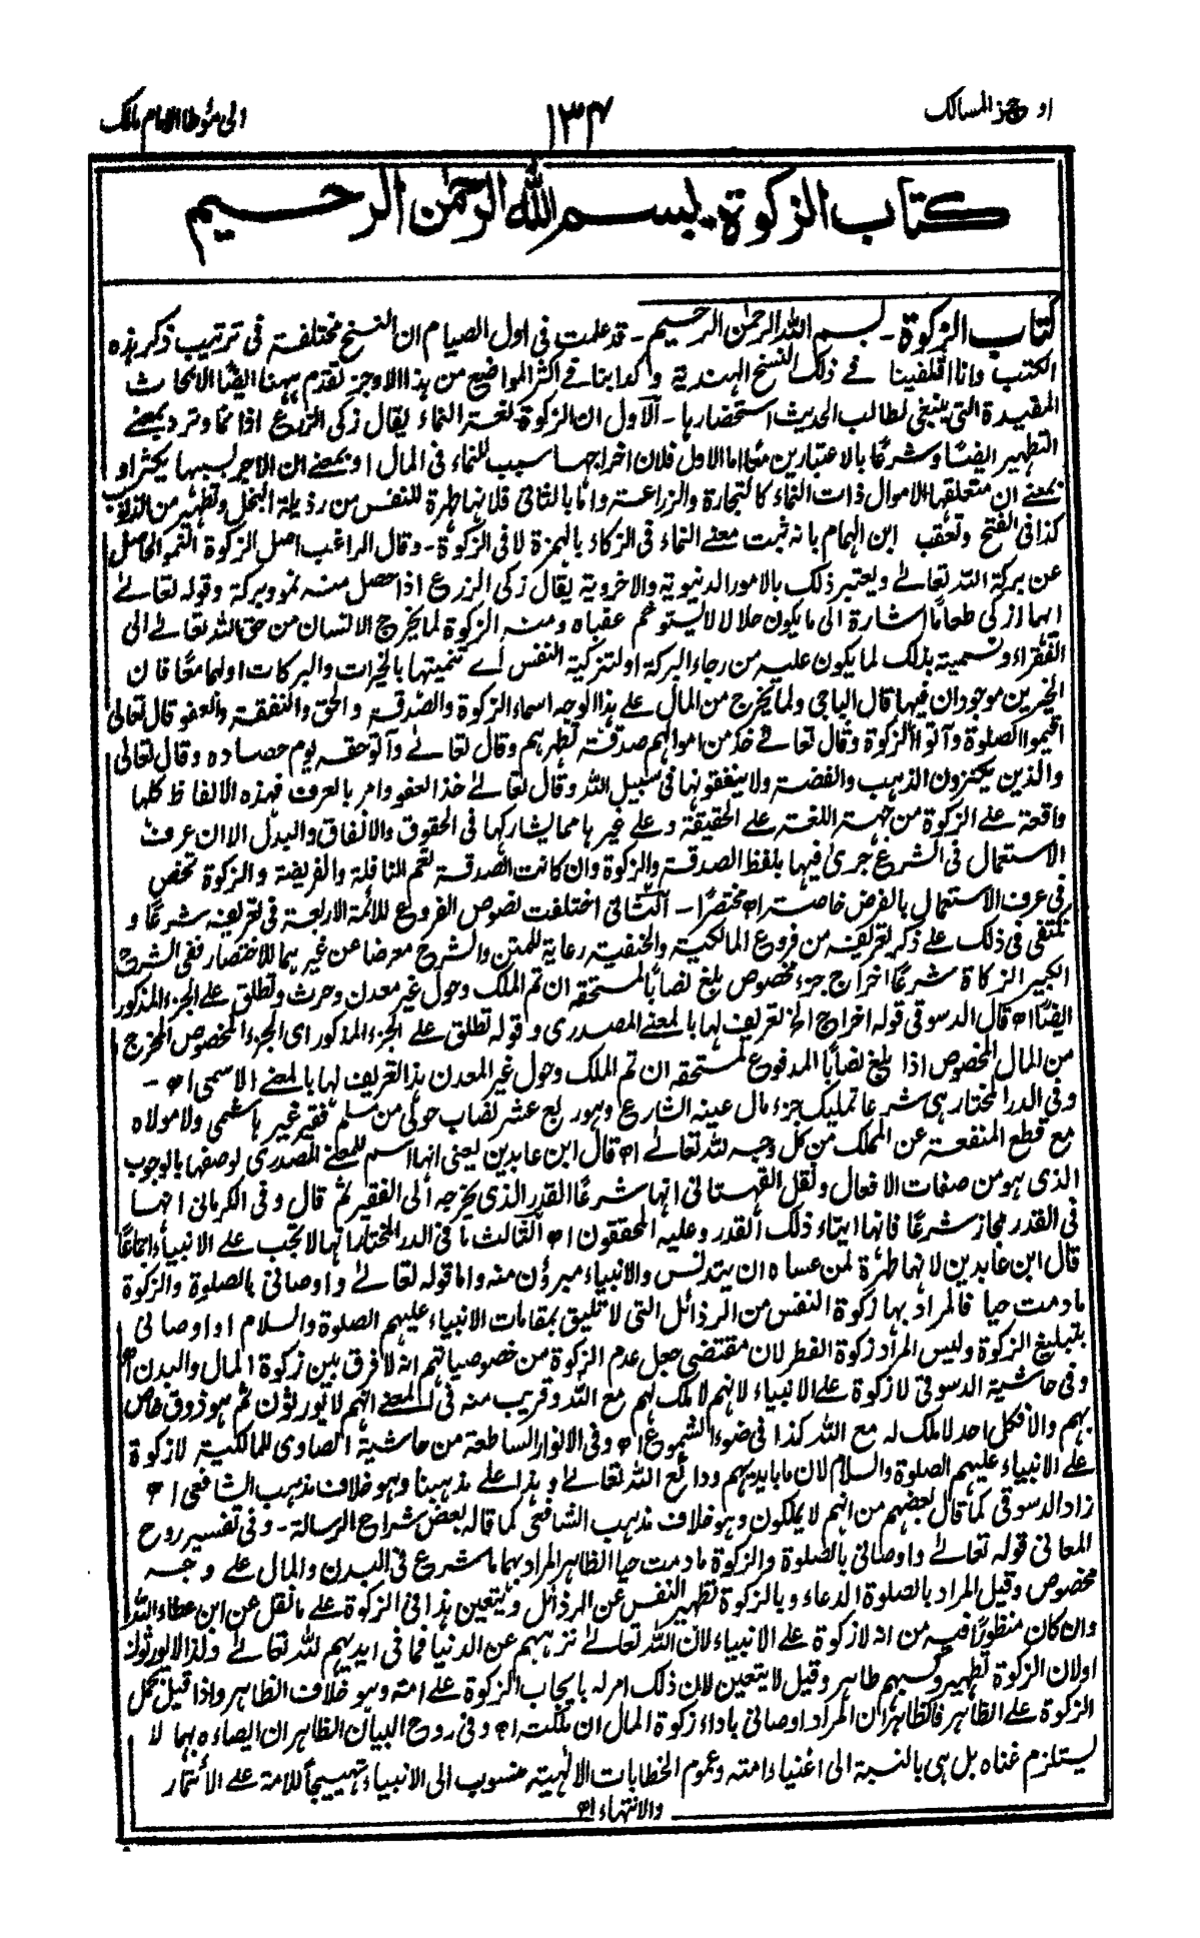 اوجز المسالك
١٣٤
الى مؤطا الامام مالك
كتاب الزكوة - بسم الله الرحمٰن الرحيم
كتاب الزكوة - بسم الله الرحمٰن الرحيم - قد علمت فى اول الصيام ان النسخ مختلفة فى ترتيب ذكر هذه
الكتب وانا اقتفينا فے ذلك النسخ الهندية وكدابنا فے اكثر المواضع من هذا الاوجز نقدم ههنا ايضًا الابحاث
المفيدة التى ينبغى لطالب الحديث استحضارها - الآول ان الزكوة لغة النماء يقال زكى الزرع اذا نما وترد بمعنے
التطهير ايضًا وشرعًا بالاعتبارين معًا اما الاول فلان اخراجها سبب للنماء فى المال او بمعنے ان الاجر بسببها يكثر او
بمعنے ان متعلقها الاموال ذات النماء كالتجارة والزراعة واما بالثانى فلانها طهرة للنفس من رذيلة البخل وتطهير من الذنوب
كذا فى الفتح وتعقب ابن الهمام بانه ثبت معنے النماء فى الزكاء بالهمزة لا فى الزكوة - وقال الراغب اصل الزكوة النمو الحاصل
عن بركة الله تعالےٰ ويعتبر ذلك بالامور الدنيوية والاخروية يقال زكى الزرع اذا حصل منه نمو وبركة وقوله تعالےٰ
ايها ازكى طعامًا اشارة الى ما يكون حلالا لا يستوخم عقباه ومنه الزكوة لما يخرج الانسان من حق الله تعالےٰ الى
الفقراء وتسميته بذلك لما يكون عليه من رجاء البركة او لتزكية النفس اے تنميتها بالخيرات والبركات او لهما معًا فان
الخيرين موجودان فيها قال الباجى ولما يخرج من المال علے هذا الوجه اسماء الزكوة والصدقة والحق والنفقة والعفو قال تعالى
اقيموا الصلوة وآتوا الزكوة وقال تعالےٰ خذ من اموالهم صدقة تطهرهم وقال تعالےٰ وآتوا حقه يوم حصاده وقال تعالى
والذين يكنزون الذهب والفضة ولا ينفقونها فى سبيل الله وقال تعالےٰ خذ العفو وامر بالعرف فهذه الالفاظ كلها
واقعة علے الزكوة من جهة اللغة علے الحقيقة وعلے غيرها مما يشاركها فى الحقوق والانفاق والبدل الا ان عرف
الاستعمال فى الشرع جرى فيها بلفظ الصدقة والزكوة وان كانت الصدقة تعم النافلة والفريضة والزكوة تختص
فى عرف الاستعمال بالفرض خاصة اھ مختصرًا - آلثانى اختلفت نصوص الفروع للائمة الاربعة فى تعريفه شرعًا و
نكتفى فى ذلك علے ذكر تعريفه من فروع المالكية والحنفية رعاية للمتن والشرح معرضا عن غيرهما للاختصار ففى الشرح
الكبير الزكاة شرعًا اخراج جزء مخصوص بلغ نصابًا لمستحقه ان تم الملك وحول غير معدن وحرث وتطلق على الجزء المذكور
ايضًا اھ قال الدسوقى قوله اخراج الخ تعريف لها بالمعنے المصدرى وقوله تطلق علے الجزء المذكور اى الجزء المخصوص المخرج
من المال المخصوص اذا بلغ نصابًا المدفوع لمستحقه ان تم الملك وحول غير المعدن هذا تعريف لها بالمعنے الاسمى اھ -
وفى الدر المختار هى شرعا تمليك جزء مال عينه الشارع وهو ربع عشر نصاب حولى من مسلم فقير غير هاشمى ولا مولاه
مع قطع المنفعة عن المملك من كل وجه لله تعالےٰ اھ قال ابن عابدين يعنى انها اسم للمعنے المصدرى لوصفها بالوجوب
الذى هو من صفات الافعال ونقل القهستانى انها شرعًا القدر الذى يخرجه الى الفقير ثم قال وفى الكرمانى انها
فى القدر مجاز شرعًا فانها ايتاء ذلك القدر وعليه المحققون اھ آلثالث ما فى الدر المختار انها لا تجب على الانبياء اجماعًا
قال ابن عابدين لانها طهرة لمن عساه ان يتدنس والانبياء مبرؤن منه واما قوله تعالےٰ واوصانى بالصلوة والزكوة
مادمت حيا فالمراد بها زكوة النفس من الرذائل التى لا تليق بمقامات الانبياء عليهم الصلوة والسلام او اوصانى
بتبليغ الزكوة وليس المراد زكوة الفطر لان مقتضى جعل عدم الزكوة من خصوصياتهم انه لا فرق بين زكوة المال والبدن اھ
وفى حاشية الدسوقى لا زكوة على الانبياء لانهم لا ملك لهم مع الله وقريب منه فى المعنے انهم لا يورثون ثم هو ذوق خاص
بهم والا فكل احد لا ملك له مع الله كذا فى ضوء الشموع اھ وفى الانوار الساطعة من حاشية الصاوى للمالكية لا زكوة
علے الانبياء عليهم الصلوة والسلام لان ما بايديهم ودائع الله تعالےٰ وهذا علے مذهبنا وهو خلاف مذهب الشافعى اھ
زاد الدسوقى كما قال بعضهم من انهم لا يملكون وهو خلاف مذهب الشافعى كما قاله بعض شراح الرسالة - وفى تفسير روح
المعانى قوله تعالےٰ واوصانى بالصلوة والزكوة مادمت حيا الظاهر المراد بهما ما شرع فى البدن والمال علے وجه
مخصوص وقيل المراد بالصلوة الدعاء وبالزكوة تطهير النفس عن الرذائل ويتعين هذا فى الزكوة علے ما نقل عن ابن عطاء الله
وان كان منظورًا فيه من انه لا زكوة علے الانبياء لان الله تعالےٰ نزههم عن الدنيا فما فى ايديهم لله تعالےٰ ولذا لا يورثون
اولان الزكوة تطهير وكسبهم طاهر وقيل لا يتعين لان ذلك امر له بايجاب الزكوة علے امته وهو خلاف الظاهر واذا قيل بحمل
الزكوة علے الظاهر فالظاهر ان المراد اوصانى باداء زكوة المال ان ملكت اھ وفى روح البيان الظاهر ان ايصاءه بهما لا
يستلزم غناه بل هى بالنسبة الى اغنياء امته وعموم الخطابات الالهية منسوب الى الانبياء تهييجًا للامة علے الائتمار
والانتهاء اھ